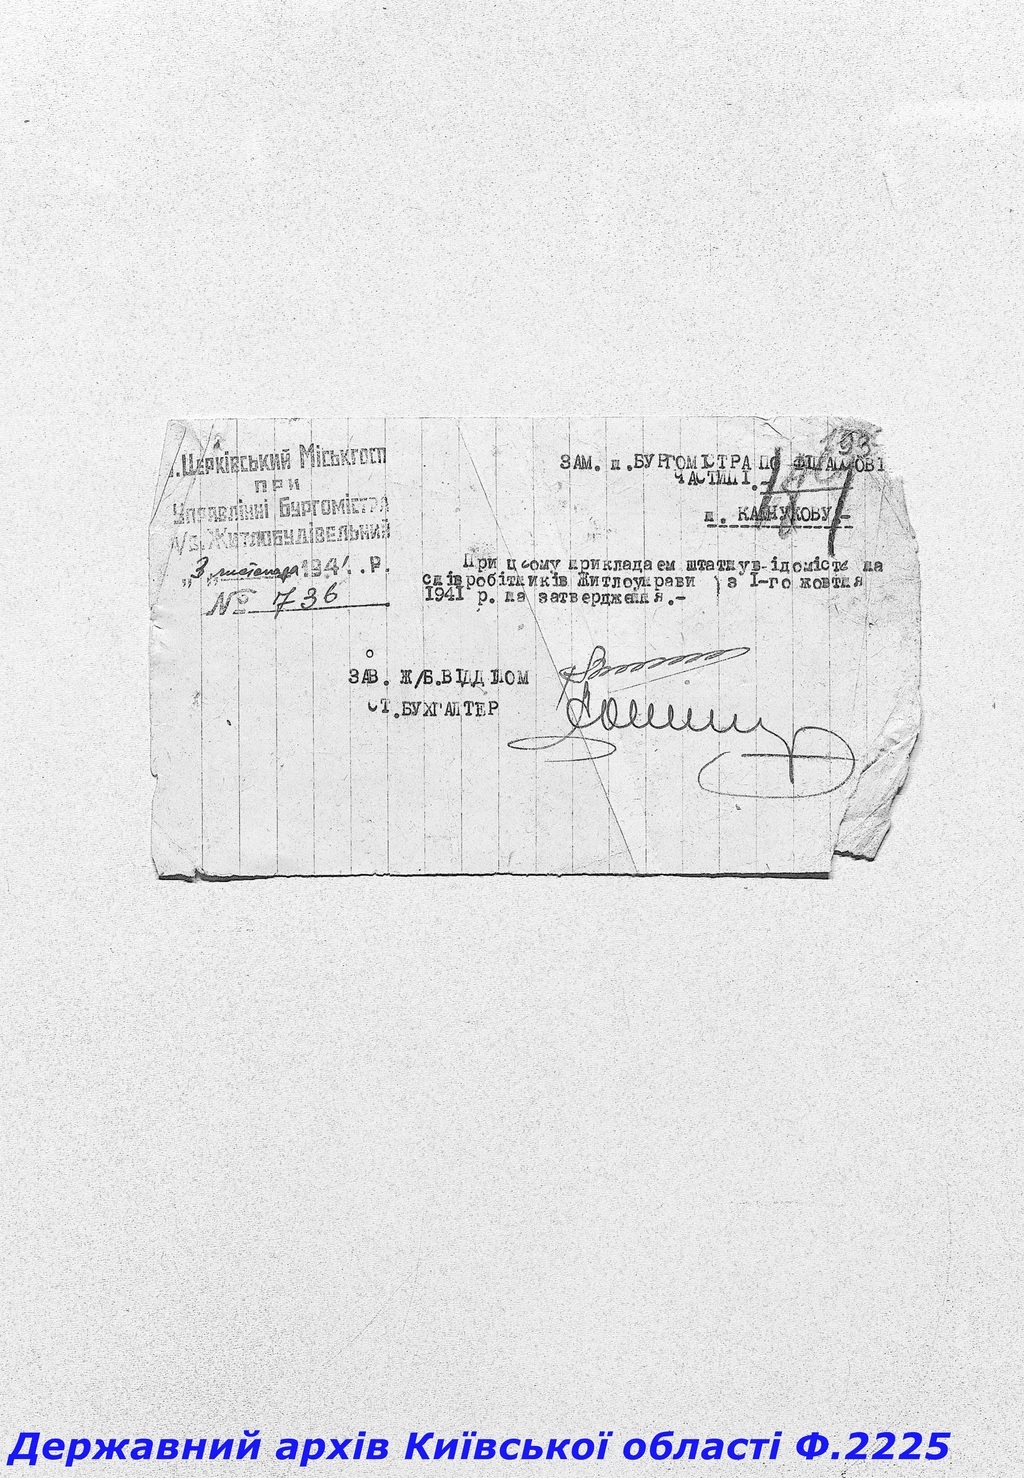 193
.Церківський Міськгосп
при
Управлінні Бургомістра
Житлобудівельний
„3„ листопада 1941. Р.
№ 736
ЗАМ. п.БУРГОМІСТРА ПО ФІНАНСОВІ
ЧАСТИНІ.-
п. КАНУКОВУ.-
При цьому прикладаєм штатну відомість на
співробітників Житлоуправи з І-го жовтня
1941 р. на затвердження.-
ЗАВ. Ж/Б.ВІДДІЛОМ
СТ.БУХГАЛТЕР
Державний архів Київської області Ф.2225